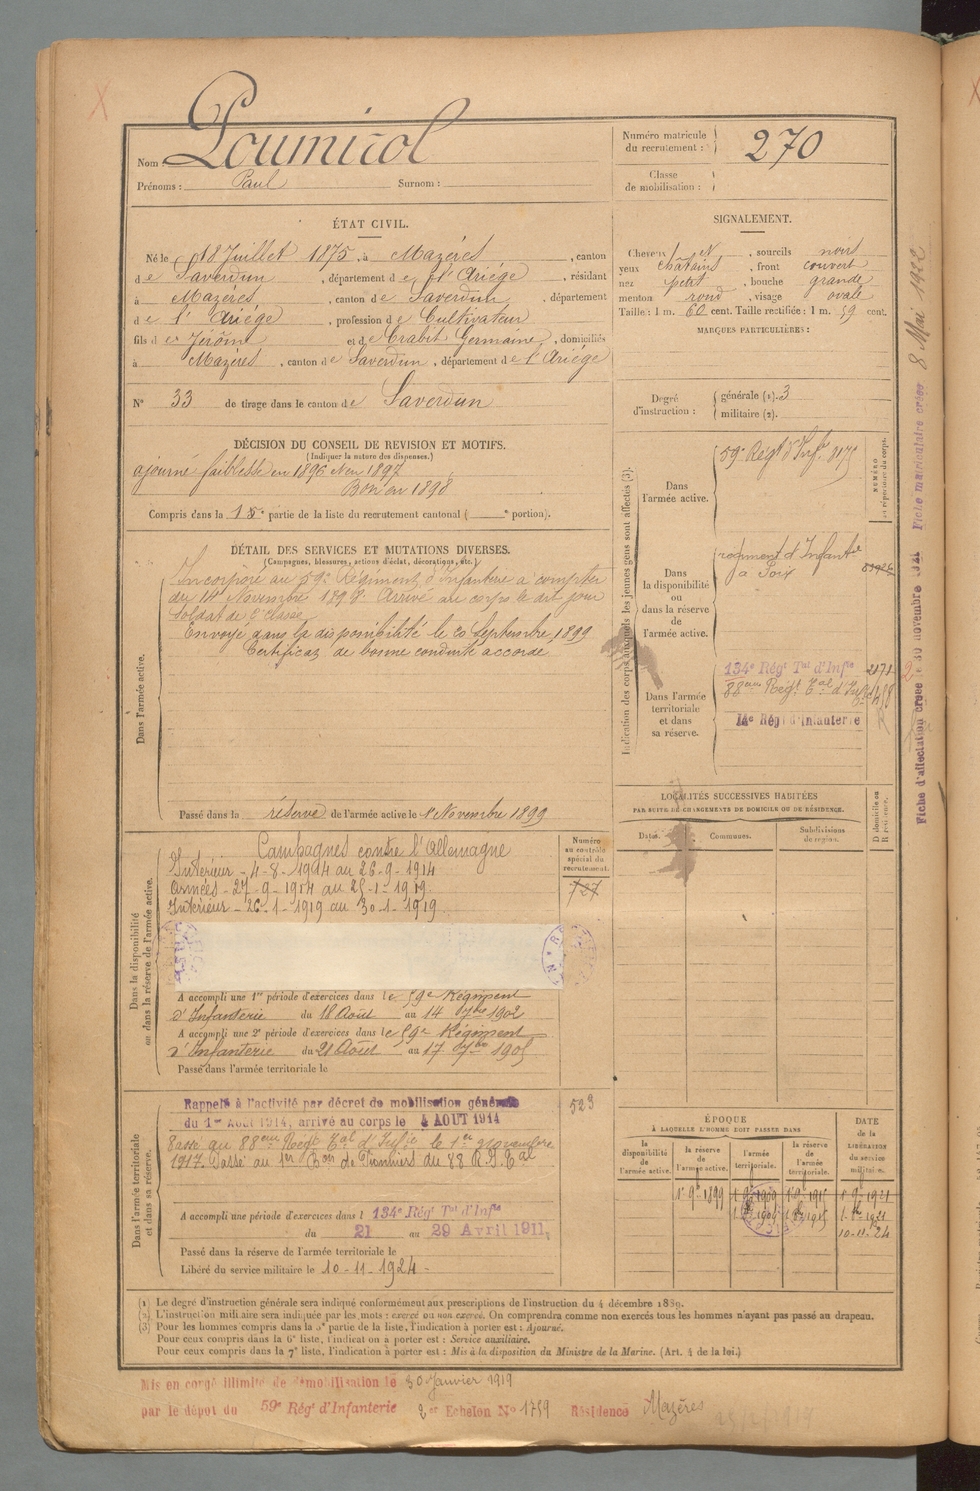 Nom : Poumirol
Prénoms : Paul Surnom :
Numéro matricule du recrutement : 270
Classe de mobilisation :
ÉTAT CIVIL.
Né le 18 Juillet 1875, à Mazères, canton
de Saverdun, département de l'Ariège, résidant
à Mazères, canton de Saverdun, département
de l'Ariège, profession de Cultivateur
fils de Jérôme et de Crabit Germaine, domiciliés
à Mazères, canton de Saverdun, département de l'Ariège
N° 33 de tirage dans le canton de Saverdun
SIGNALEMENT.
Cheveux et, sourcils noirs
yeux châtains, front couvert
nez petit, bouche grande
menton rond, visage ovale
Taille : 1 m. 60 cent. Taille rectifiée : 1 m. 59 cent.
MARQUES PARTICULIÈRES :
Degré d'instruction : générale (1). 3
militaire (2).
DÉCISION DU CONSEIL DE REVISION ET MOTIFS.
(Indiquer la nature des dispenses.)
ajourné faiblesse en 1896 et en 1897
Bon en 1898
Compris dans la 1e partie de la liste du recrutement cantonal ( e portion).
DÉTAIL DES SERVICES ET MUTATIONS DIVERSES.
(Campagnes, blessures, actions d'éclat, décorations, etc.)
Dans l'armée active.
Incorporé au 59e Régiment d'Infanterie à compter
du 14 Novembre 1898. Arrivé au corps le dit jour
soldat de 2e classe
Envoyé dans la disponibilité le 20 Septembre 1899
Certificat de bonne conduite accordé
Passé dans la réserve de l'armée active le 1er Novembre 1899
Indication des corps auxquels les jeunes gens sont affectés (3).
NUMÉRO au répertoire du corps.
Dans l'armée active.
59e Régt d'Infie 3175
Dans la disponibilité ou dans la réserve de l'armée active.
régiment d'Infanterie
à Foix
Dans l'armée territoriale et dans sa réserve.
134e Régt Tal d'Infie 2171
88eme Régt Tal d'Infie
14e Rég d'Infanterie
LOCALITÉS SUCCESSIVES HABITÉES
PAR SUITE DE CHANGEMENTS DE DOMICILE OU DE RÉSIDENCE.
Dates. Communes. Subdivisions de région. D domicile ou R résidence.
Dans la disponibilité ou dans la réserve de l'armée active.
Numéro au contrôle spécial du recrutement.
727
Campagnes contre l'Allemagne
Intérieur - 4-8-1914 au 26-9-1914
Armées - 27-9-1914 au 25-1-1919
Intérieur - 26-1-1919 au 30-1-1919
A accompli une 1re période d'exercices dans le 59e Régiment
d'Infanterie du 18 Août au 14 7bre 1902
A accompli une 2e période d'exercices dans le 59e Régiment
d'Infanterie du 21 Août au 17 7bre 1905
Passé dans l'armée territoriale le
Dans l'armée territoriale et dans sa réserve.
523
Rappelé à l'activité par décret de mobilisation générale
du 1er Août 1914, arrivé au corps le 4 AOUT 1914
Passé au 88eme Régt Tal d'Infie le 1er novembre
1917. Passé au 1er Bon de Pionniers du 88 R.I. Tal
A accompli une période d'exercices dans l 134e Régt Tal d'Infie
du 21 au 29 Avril 1911.
Passé dans la réserve de l'armée territoriale le
Libéré du service militaire le 10-11-1924
ÉPOQUE
À LAQUELLE L'HOMME DOIT PASSER DANS
la disponibilité de l'armée active.
la réserve de l'armée active.
l'armée territoriale.
la réserve de l'armée territoriale.
DATE de la LIBÉRATION du service militaire.
1er 9bre 1899
10-11-24
(1) Le degré d'instruction générale sera indiqué conformément aux prescriptions de l'instruction du 4 décembre 1889.
(2) L'instruction militaire sera indiquée par les mots : exercé ou non exercé. On comprendra comme non exercés tous les hommes n'ayant pas passé au drapeau.
(3) Pour les hommes compris dans la 5e partie de la liste, l'indication à porter est : Ajourné.
Pour ceux compris dans la 6e liste, l'indication à porter est : Service auxiliaire.
Pour ceux compris dans la 7e liste, l'indication à porter est : Mis à la disposition du Ministre de la Marine. (Art. 4 de la loi.)
Mis en congé illimité de démobilisation le 30 Janvier 1919
par le dépôt du 59e Régt d'Infanterie 2e Echelon N° 1759 Résidence Mazères
Fiche d'affectation créée le 30 novembre 1921 Fiche matriculaire créée 8 Mai 1922